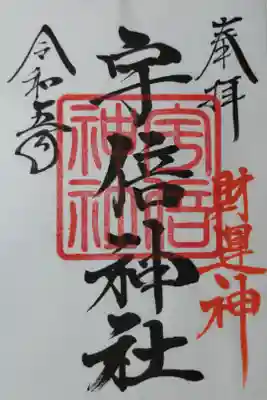 奉拝
財運神
宇倍神社
宇倍
神社
令和